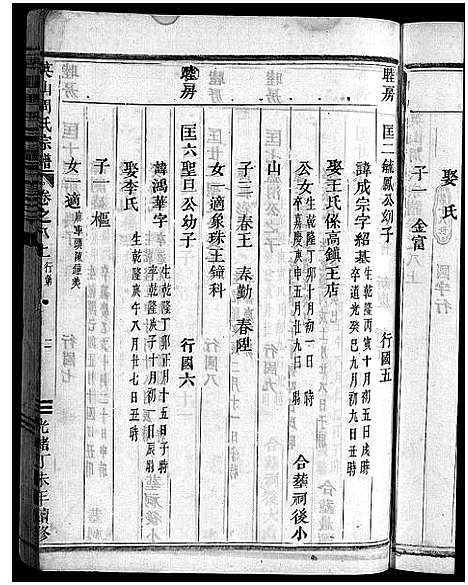 娶氏
子一 金富
睦房 匡二毓鳳公幼子 行國五
諱成宗字紹基 生乾隆丙寅十月初五日戌時 卒道光癸巳九月初九日丑時
娶王氏係高鎮王店
公女 生乾隆丁卯十月初一日 時 卒嘉慶庚申五月廿九日 時 合葬祠後小
山
子三 春王 春勤 春陞
女一適象珠王鐘科
睦房 匡六聖旦公幼子 行國六
諱鴻華字 生乾隆丁卯正月十五日子時 卒乾隆庚子十月初一日辰時 葬後小
娶李氏 生乾隆庚午八月廿七日丑時
子一 樞
女一適
英山周氏宗譜 卷之八上 行第
光緒丁未年續修